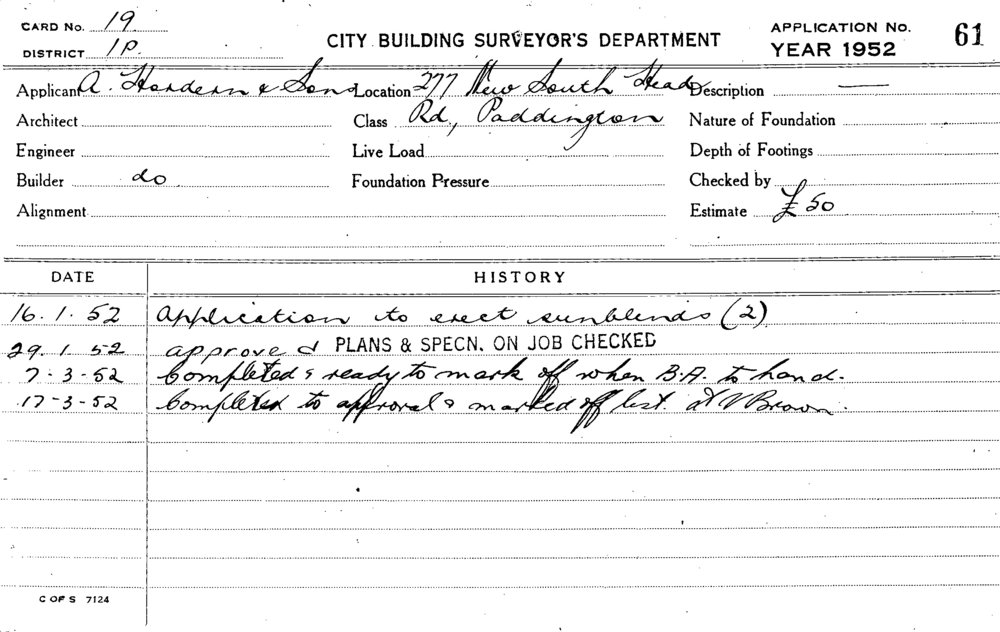 CARD No. 19
DISTRICT 1P.
CITY BUILDING SURVEYOR'S DEPARTMENT
APPLICATION No. 61
YEAR 1952
Applicant A. Hordern & Sons Location 277 New South Head Description —
Architect Class Rd, Paddington Nature of Foundation
Engineer Live Load Depth of Footings
Builder do Foundation Pressure Checked by
Alignment Estimate £50
DATE HISTORY
16.1.52 Application to erect sunblinds (2)
29.1.52 approved PLANS & SPECN. ON JOB CHECKED
7-3-52 Completed & ready to mark off when B.A. to hand.
17-3-52 Completed to approval & marked off list. Brown.
C OF S 7124